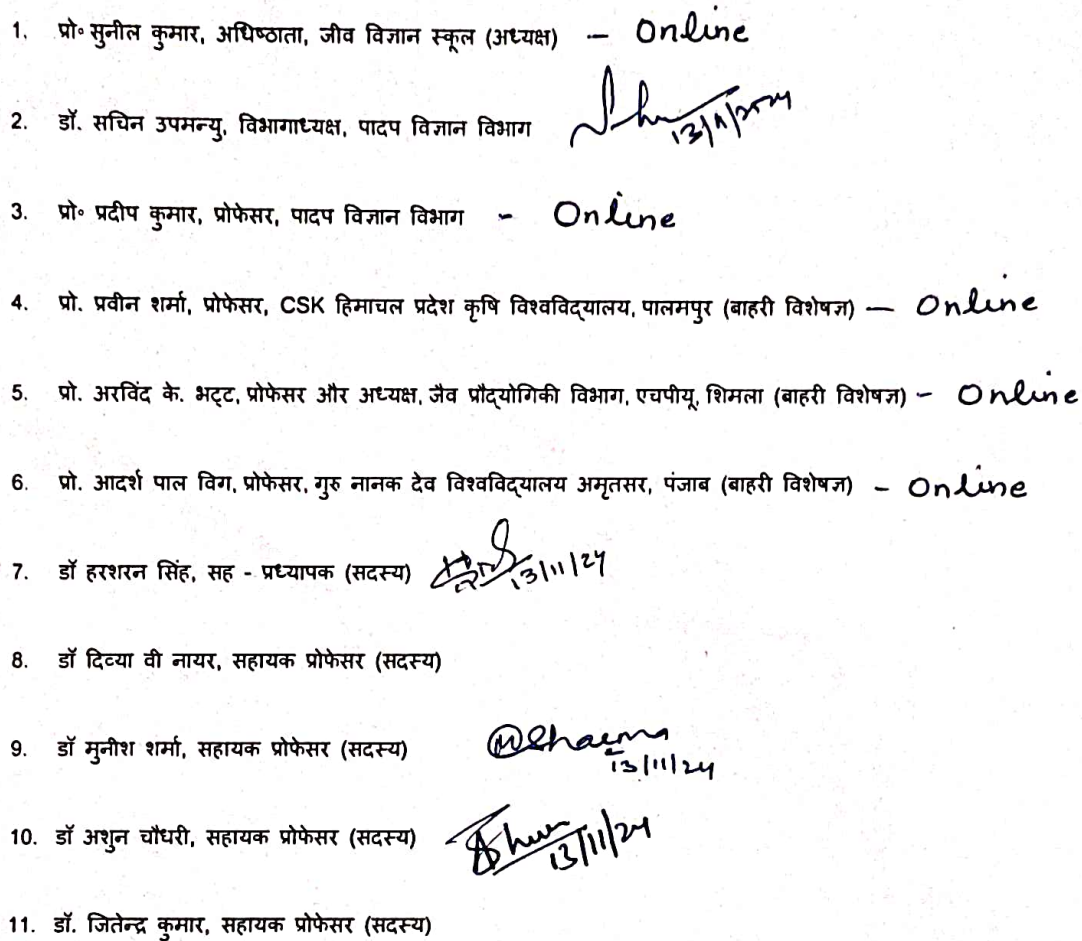 1. प्रो॰ सुनील कुमार, अधिष्ठाता, जीव विज्ञान स्कूल (अध्यक्ष) – Online
2. डॉ. सचिन उपमन्यु, विभागाध्यक्ष, पादप विज्ञान विभाग 13/11/2024
3. प्रो॰ प्रदीप कुमार, प्रोफेसर, पादप विज्ञान विभाग - Online
4. प्रो. प्रवीन शर्मा, प्रोफेसर, CSK हिमाचल प्रदेश कृषि विश्वविद्यालय, पालमपुर (बाहरी विशेषज्ञ) — Online
5. प्रो. अरविंद के. भट्ट, प्रोफेसर और अध्यक्ष, जैव प्रौद्योगिकी विभाग, एचपीयू, शिमला (बाहरी विशेषज्ञ) - Online
6. प्रो. आदर्श पाल विग, प्रोफेसर, गुरु नानक देव विश्वविद्यालय अमृतसर, पंजाब (बाहरी विशेषज्ञ) - Online
7. डॉ हरशरन सिंह, सह - प्रध्यापक (सदस्य) 13/11/24
8. डॉ दिव्या वी नायर, सहायक प्रोफेसर (सदस्य)
9. डॉ मुनीश शर्मा, सहायक प्रोफेसर (सदस्य) MSharma 13/11/24
10. डॉ अशुन चौधरी, सहायक प्रोफेसर (सदस्य) 13/11/24
11. डॉ. जितेन्द्र कुमार, सहायक प्रोफेसर (सदस्य)